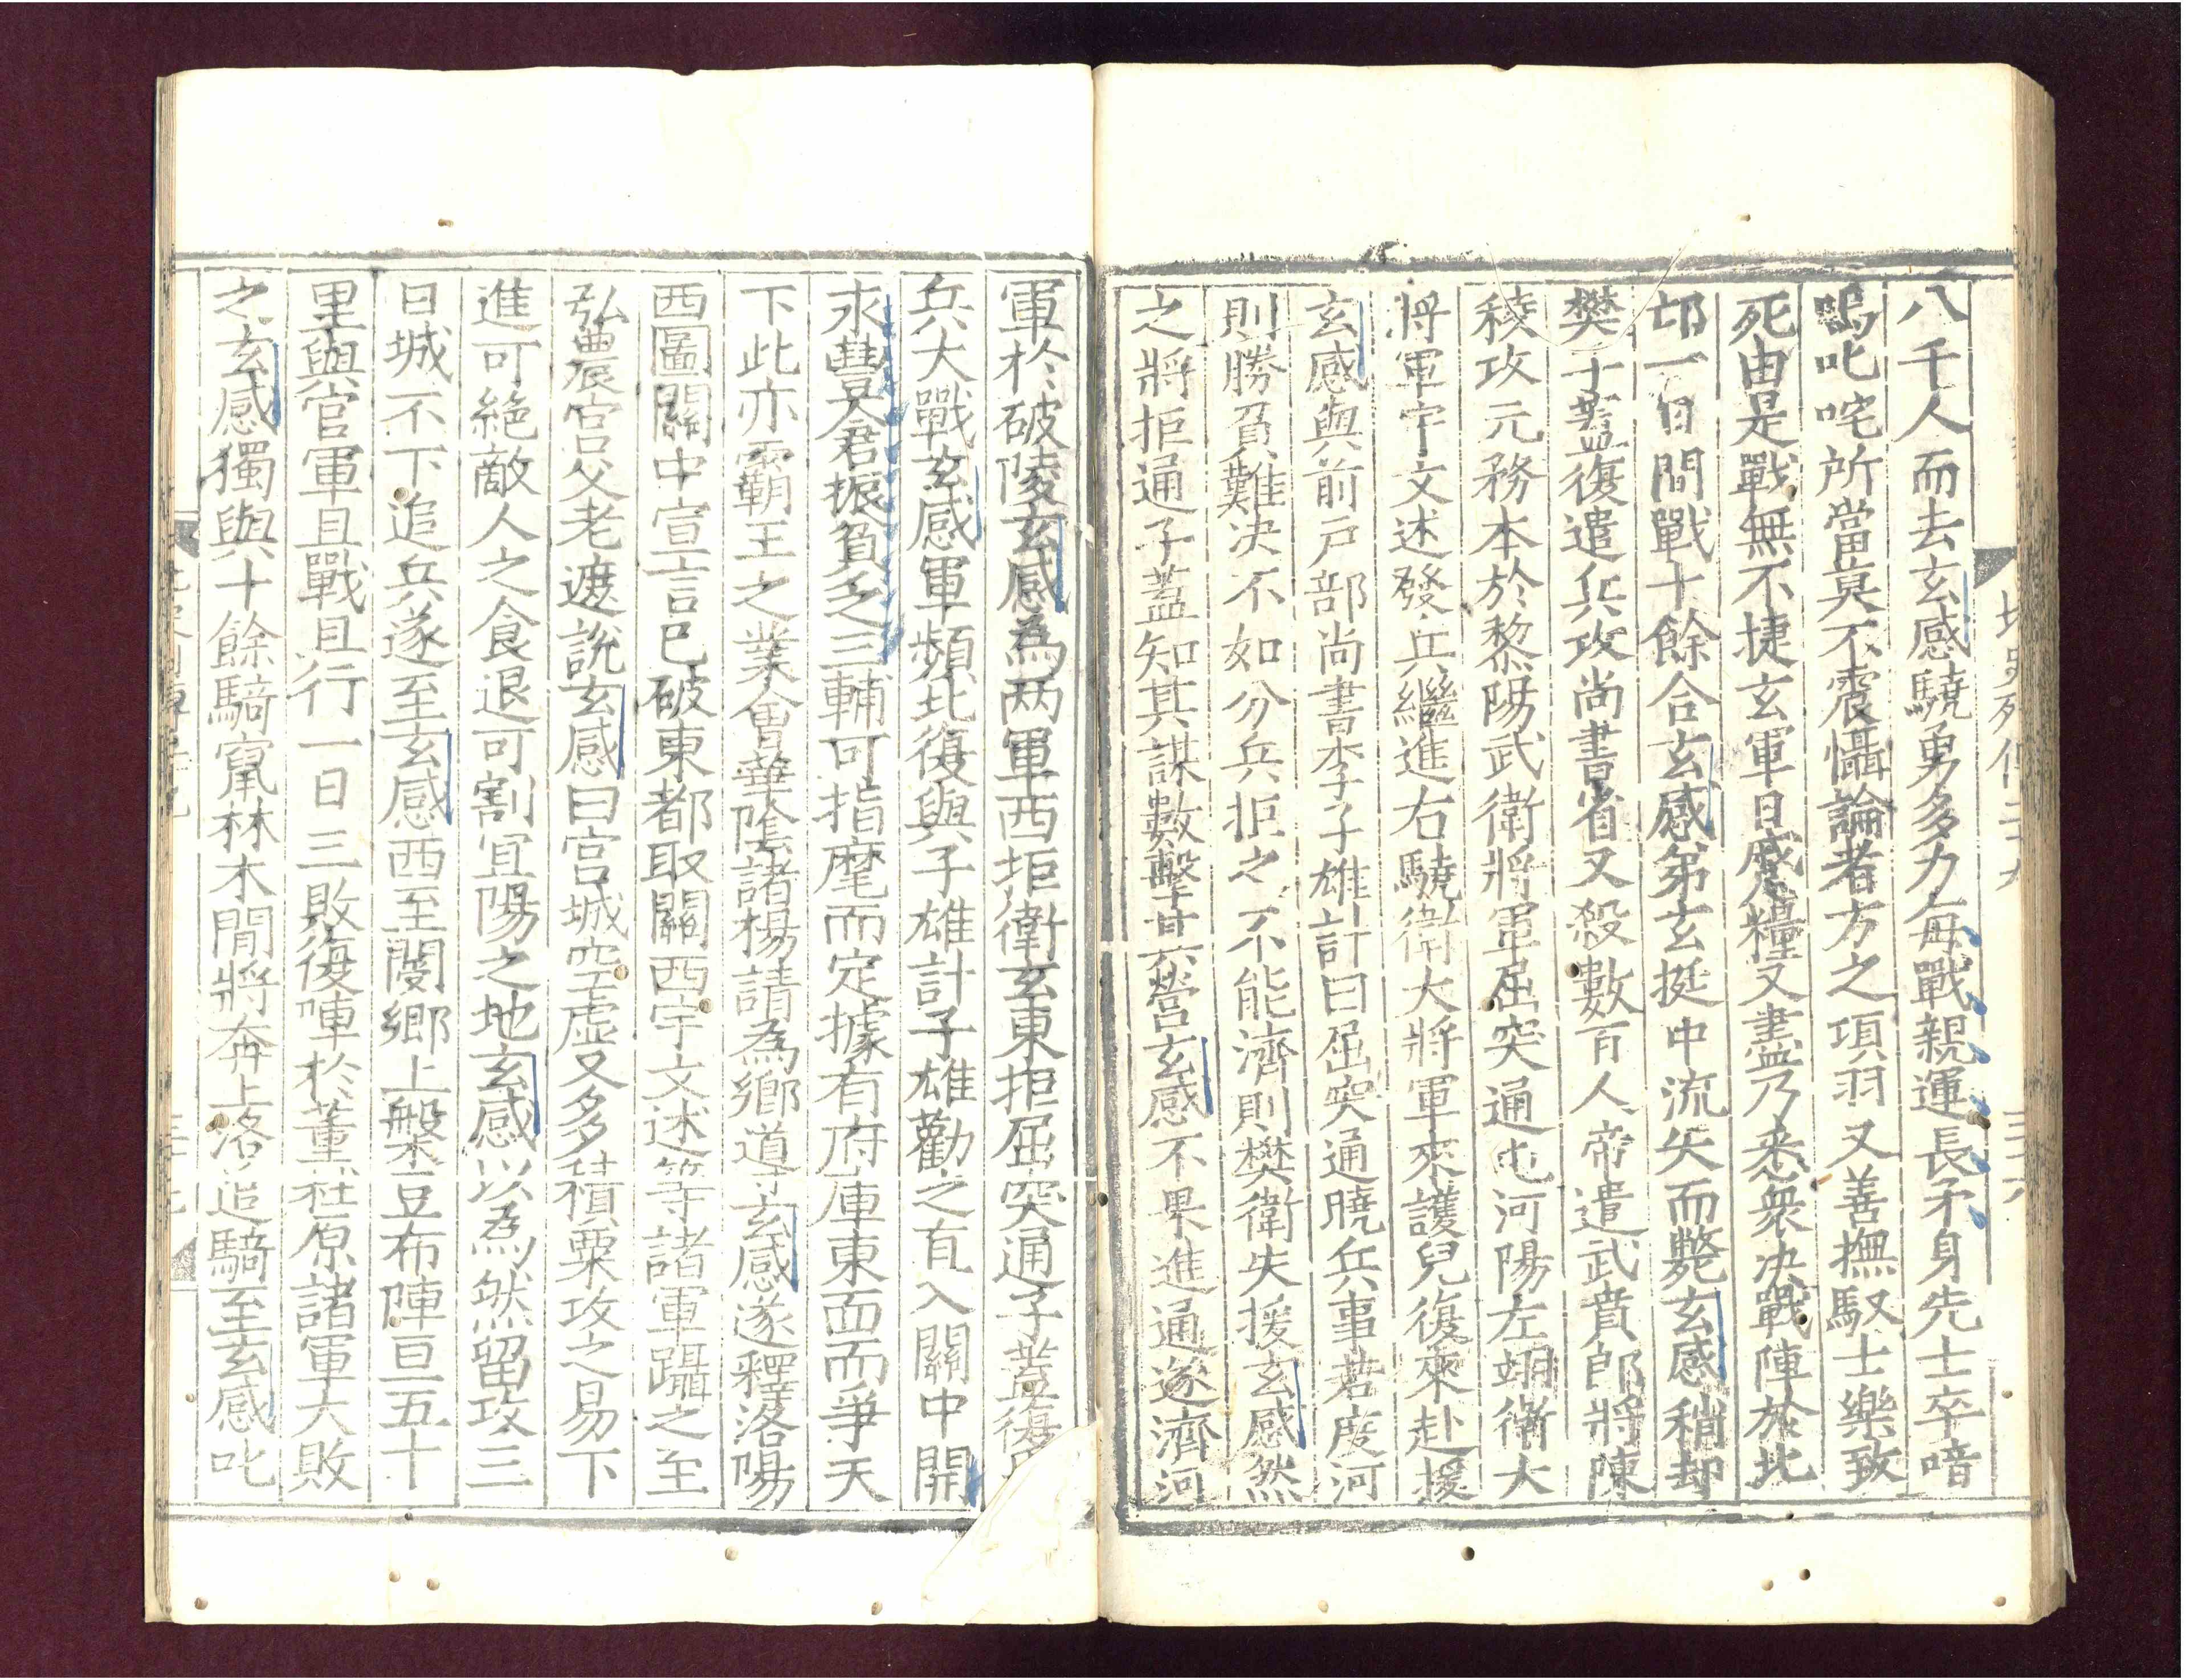 八千人而去玄感驍勇多力每戰親運長矛身先士卒喑
嗚叱咤所當莫不震懾論者方之項羽又善撫馭士樂致
死由是戰無不捷玄軍日蹙糧又盡乃悉衆決戰陣於北
邙一日間戰十餘合玄感弟玄挺中流矢而斃玄感稍却
樊子蓋復遣兵攻尚書省又殺數百人帝遣武賁郎將陳
稜攻元務本於黎陽武衛將軍屈突通屯河陽左翊衛大
將軍宇文述發兵繼進右驍衛大將軍來護兒復來赴援
玄感與前戸部尚書李子雄計曰屈突通曉兵事若度河
則勝負難決不如分兵拒之不能濟則樊衛失援玄感然
之將拒通子蓋知其謀數擊其營玄感不果進通遂濟河
軍於破陵玄感為兩軍西拒衛玄東拒屈突通子蓋復
兵大戰玄感軍頻北復與子雄計子雄勸之直入關中開
永豐倉振貧乏三輔可指麾而定據有府庫東面而爭天
下此亦霸王之業會華陰諸楊請為鄉導玄感遂釋洛陽
西圖關中宣言已破東都取關西宇文述等諸軍躡之至
弘農宮父老遮說玄感曰宮城空虛又多積粟攻之易下
進可絕敵人之食退可割宜陽之地玄感以為然留攻三
日城不下追兵遂至玄感西至閿鄉上槃豆布陣亘五十
里與官軍且戰且行一日三敗復陣於董杜原諸軍大敗
之玄感獨與十餘騎竄林木閒將奔上洛追騎至玄感叱